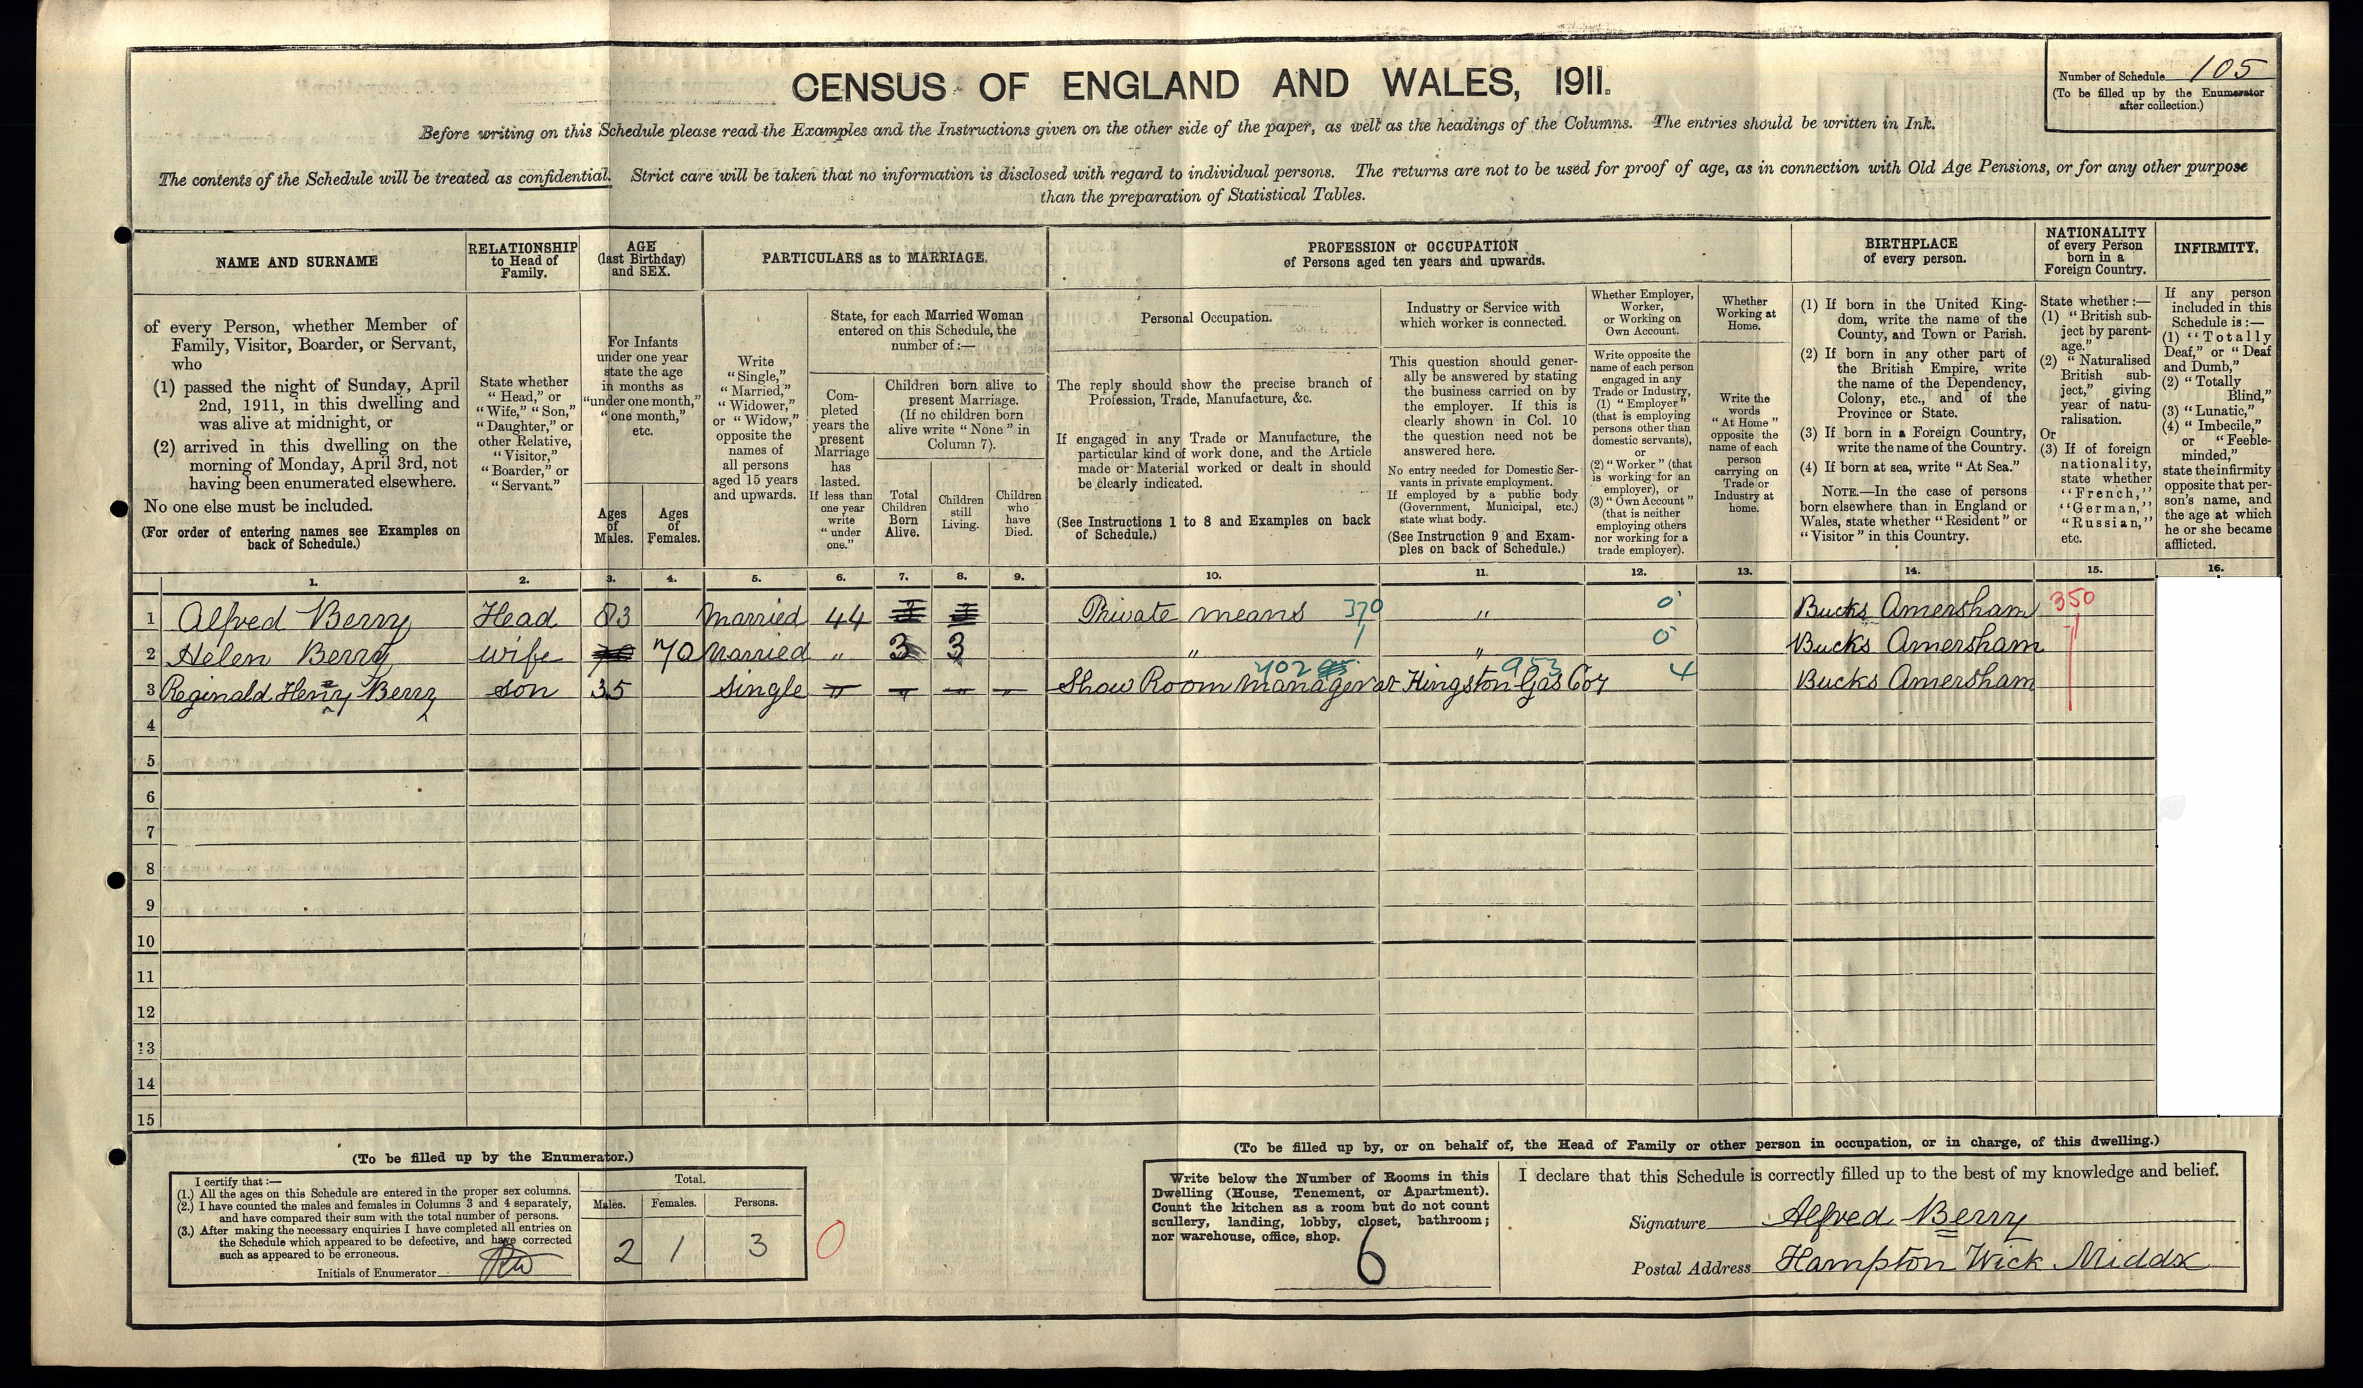 CENSUS OF ENGLAND AND WALES, 1911.
Number of Schedule 105
(To be filled up by the Enumerator
after collection.)
Before writing on this Schedule please read the Examples and the Instructions given on the other side of the paper, as well as the headings of the Columns. The entries should be written in Ink.
The contents of the Schedule will be treated as confidential. Strict care will be taken that no information is disclosed with regard to individual persons. The returns are not to be used for proof of age, as in connection with Old Age Pensions, or for any other purpose
than the preparation of Statistical Tables.
NAME AND SURNAME
of every Person, whether Member of
Family, Visitor, Boarder, or Servant,
who
(1) passed the night of Sunday, April
2nd, 1911, in this dwelling and
was alive at midnight, or
(2) arrived in this dwelling on the
morning of Monday, April 3rd, not
having been enumerated elsewhere.
No one else must be included.
(For order of entering names see Examples on
back of Schedule.)
RELATIONSHIP
to Head of
Family.
State whether
"Head," or
"Wife," "Son,"
"Daughter," or
other Relative,
"Visitor,"
"Boarder," or
"Servant."
AGE
(last Birthday)
and SEX.
For Infants
under one year
state the age
in months as
"under one month,"
"one month,"
etc.
Ages
of
Males.
Ages
of
Females.
PARTICULARS as to MARRIAGE.
Write
"Single,"
"Married,"
"Widower,"
or "Widow,"
opposite the
names of
all persons
aged 15 years
and upwards.
State, for each Married Woman
entered on this Schedule, the
number of :—
Com-
pleted
years the
present
Marriage
has
lasted.
If less than
one year
write
"under
one."
Children born alive to
present Marriage.
(If no children born
alive write "None" in
Column 7).
Total
Children
Born
Alive.
Children
still
Living.
Children
who
have
Died.
PROFESSION or OCCUPATION
of Persons aged ten years and upwards.
Personal Occupation.
The reply should show the precise branch of
Profession, Trade, Manufacture, &c.
If engaged in any Trade or Manufacture, the
particular kind of work done, and the Article
made or Material worked or dealt in should
be clearly indicated.
(See Instructions 1 to 8 and Examples on back
of Schedule.)
Industry or Service with
which worker is connected.
This question should gener-
ally be answered by stating
the business carried on by
the employer. If this is
clearly shown in Col. 10
the question need not be
answered here.
No entry needed for Domestic Ser-
vants in private employment.
If employed by a public body
(Government, Municipal, etc.)
state what body.
(See Instruction 9 and Exam-
ples on back of Schedule.)
Whether Employer,
Worker,
or Working on
Own Account.
Write opposite the
name of each person
engaged in any
Trade or Industry,
(1) "Employer"
(that is employing
persons other than
domestic servants),
or
(2) "Worker" (that
is working for an
employer), or
(3) "Own Account"
(that is neither
employing others
nor working for a
trade employer).
Whether
Working at
Home.
Write the
words
"At Home"
opposite the
name of each
person
carrying on
Trade or
Industry at
home.
BIRTHPLACE
of every person.
(1) If born in the United King-
dom, write the name of the
County, and Town or Parish.
(2) If born in any other part of
the British Empire, write
the name of the Dependency,
Colony, etc., and of the
Province or State.
(3) If born in a Foreign Country,
write the name of the Country.
(4) If born at sea, write "At Sea."
NOTE.—In the case of persons
born elsewhere than in England or
Wales, state whether "Resident" or
"Visitor" in this Country.
NATIONALITY
of every Person
born in a
Foreign Country.
State whether :—
(1) "British sub-
ject by parent-
age."
(2) "Naturalised
British sub-
ject," giving
year of natu-
ralisation.
Or
(3) If of foreign
nationality,
state whether
"French,"
"German,"
"Russian,"
etc.
INFIRMITY.
If any person
included in this
Schedule is :—
(1) "Totally
Deaf," or "Deaf
and Dumb,"
(2) "Totally
Blind,"
(3) "Lunatic,"
(4) "Imbecile,"
or "Feeble-
minded,"
state the infirmity
opposite that per-
son's name, and
the age at which
he or she became
afflicted.
1. 2. 3. 4. 5. 6. 7. 8. 9. 10. 11. 12. 13. 14. 15. 16.
1 Alfred Berry Head 83 Married 44 Private means 370 " 0 Bucks Amersham 350
2 Helen Berry wife 70 Married " 3 3 " 1 " 0 Bucks Amersham
3 Reginald Henry Berry son 35 single " " " " Show Room Manager at Kingston Gas Coy 402 953 4 Bucks Amersham
4
5
6
7
8
9
10
11
12
13
14
15
(To be filled up by the Enumerator.)
I certify that :—
(1.) All the ages on this Schedule are entered in the proper sex columns.
(2.) I have counted the males and females in Columns 3 and 4 separately,
and have compared their sum with the total number of persons.
(3.) After making the necessary enquiries I have completed all entries on
the Schedule which appeared to be defective, and have corrected
such as appeared to be erroneous.
Initials of Enumerator
Total.
Males. Females. Persons.
2 1 3 0
(To be filled up by, or on behalf of, the Head of Family or other person in occupation, or in charge, of this dwelling.)
Write below the Number of Rooms in this
Dwelling (House, Tenement, or Apartment).
Count the kitchen as a room but do not count
scullery, landing, lobby, closet, bathroom;
nor warehouse, office, shop.
6
I declare that this Schedule is correctly filled up to the best of my knowledge and belief.
Signature Alfred Berry
Postal Address Hampton Wick Middx